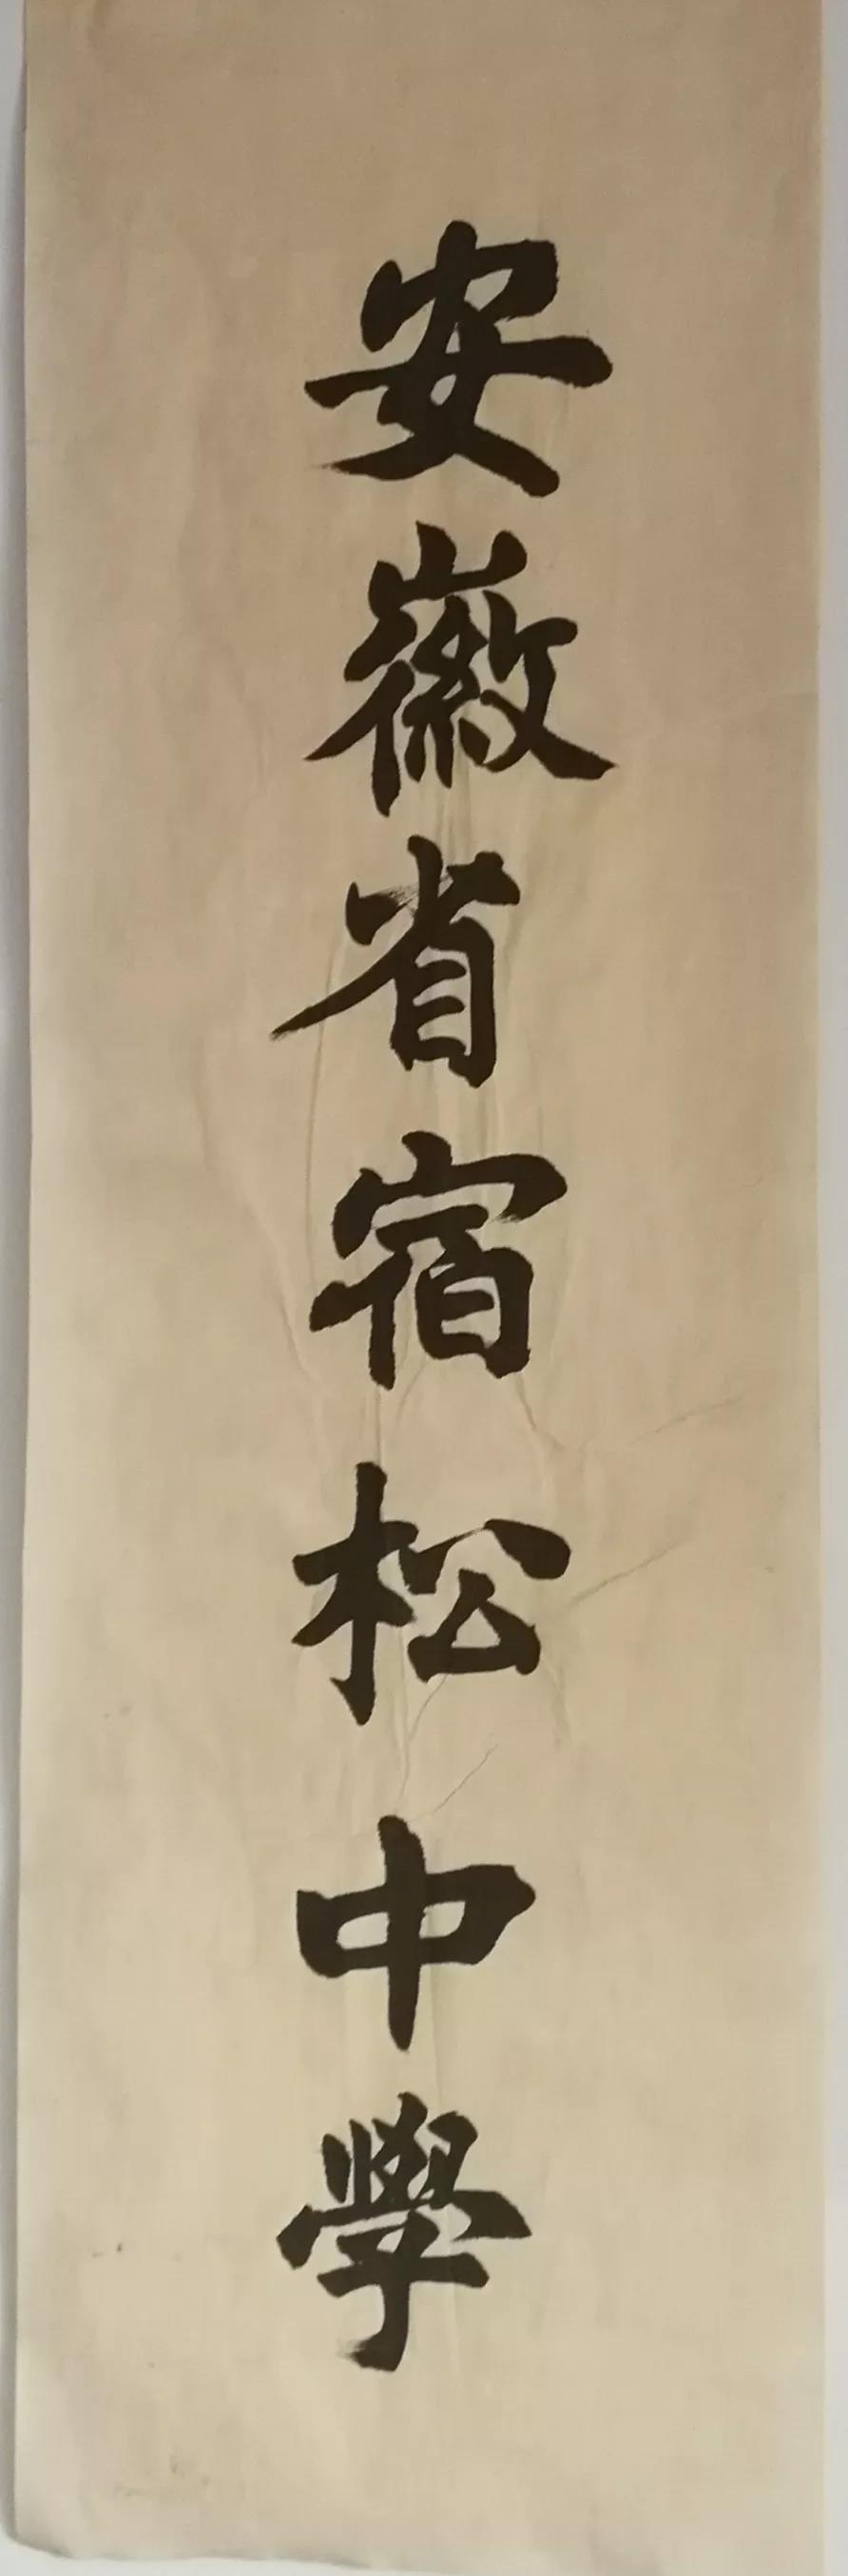 安徽省宿松中學